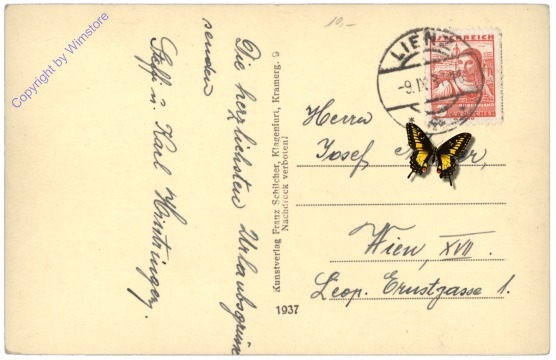 Copyright by Wimstore
10,-
Die herzlichsten Urlaubsgrüße
senden
Steffi u. Karl
Kunstverlag Franz Schilcher, Klagenfurt, Kramerg. 9
Nachdruck verboten!
1937
LIENZ
-9.IX.3
ÖSTERREICH
Herrn
Josef
Wien, XVII.
Leop. Ernstgasse 1.